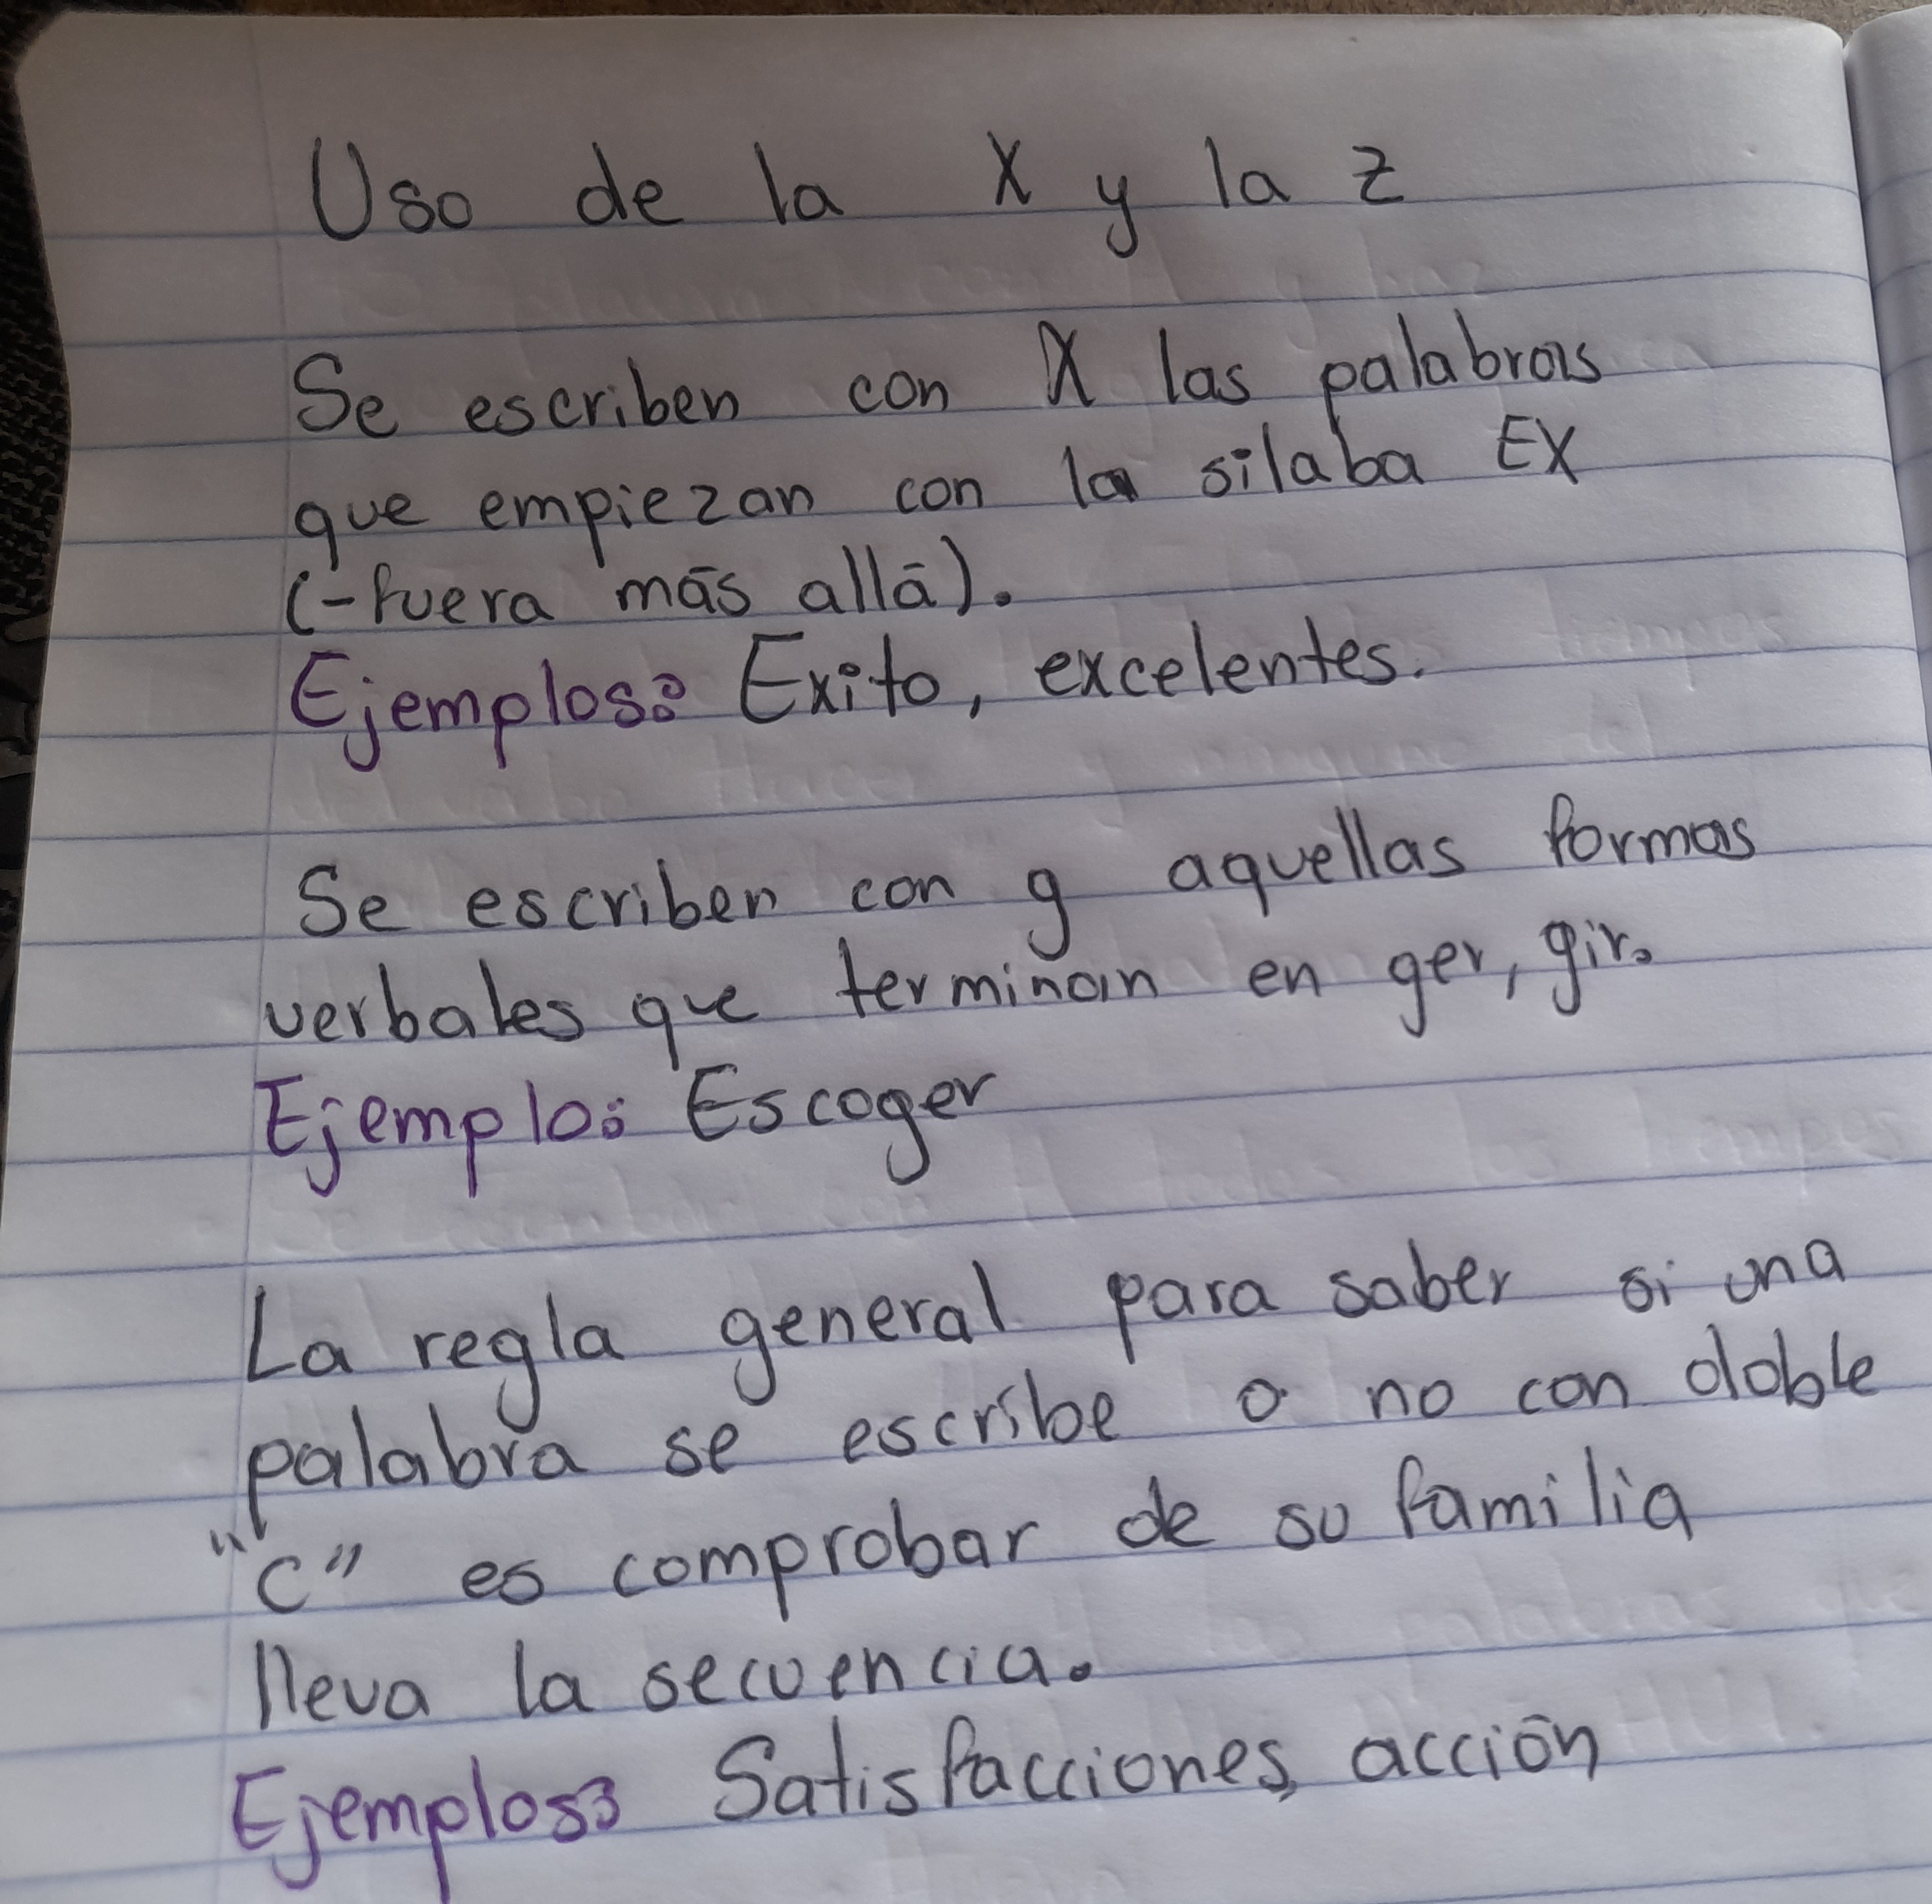 Uso de la X y la z
Se escriben con X las palabras
que empiezan con la silaba EX
(-fuera más allá).
Ejemplos: Exito, excelentes.
Se escriben con g aquellas formas
verbales que terminan en ger, gir.
Ejemplo: Escoger
La regla general para saber si una
palabra se escribe o no con doble
"c" es comprobar de su familia
lleva la secuencia.
Ejemplos: Satisfacciones, acción